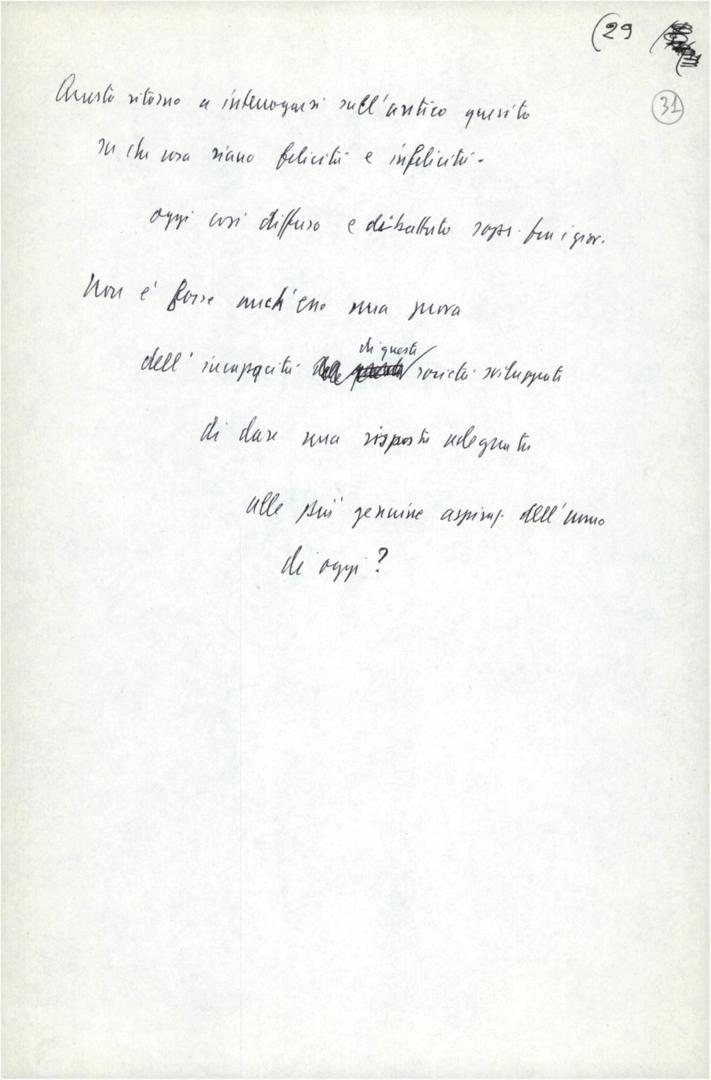 (29
31
Questo ritorno a interrogarsi sull'antico quesito
su che cosa siano felicità e infelicità.
oggi così diffuso e dibattuto sopr. fra i giov.
Non è forse anch'esso una prova
di questa
dell'incapacità società sviluppata
di dare una risposta adeguata
alle più genuine aspiraz. dell'uomo
di oggi?